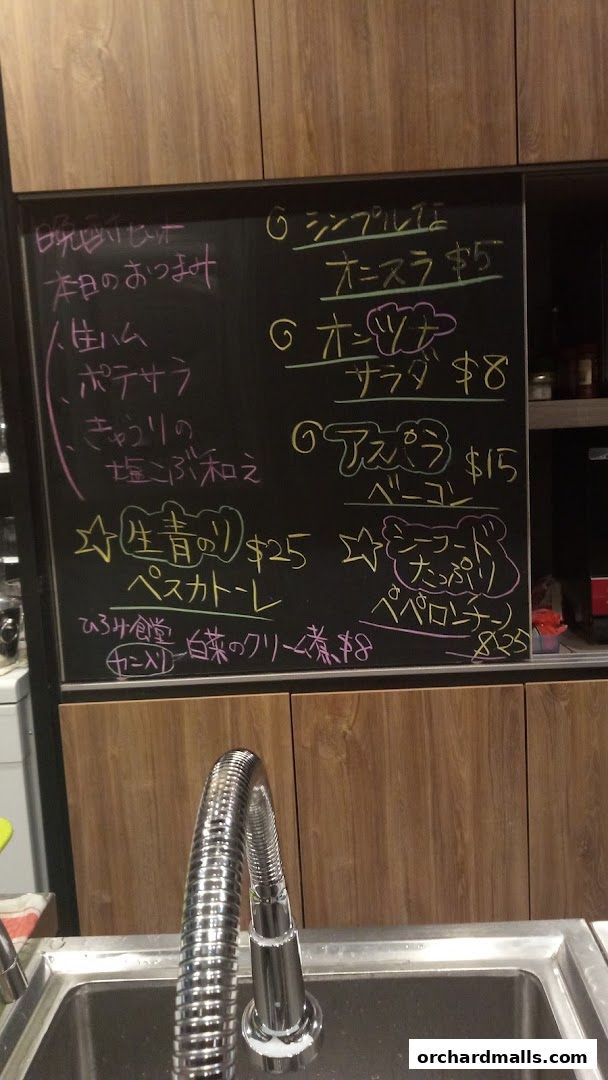 晩酌セット
本日のおつまみ
・生ハム
・ポテサラ
・きゅうりの
塩こぶ和え
シンプルな
オニスラ $5
オンツナ
サラダ $8
アスパラ
ベーコン $15
☆生青のり $25
ペスカトーレ
☆シーフード
たっぷり
ペペロンチーノ
$25
ひろみ食堂
カニ入り 白菜のクリーム煮 $8
orchardmalls.com